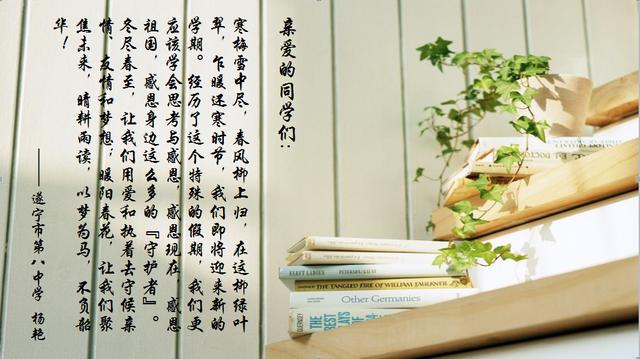 亲爱的同学们：
寒梅雪中尽，春风柳上归，在这柳绿叶
翠，乍暖还寒时节，我们即将迎来新的
学期。经历了这个特殊的假期，我们更
应该学会思考与感恩，感恩现在 感恩
祖国，感恩身边这么多的『守护者』。
冬尽春至，让我们用爱和执着去守候亲
情、友情和梦想；暖阳春花，让我们聚
焦未来，晴耕雨读，以梦为马，不负韶
华！
——遂宁市第八中学 杨艳
EXIT LADIES
THE TANGLED FIRE OF WILLIAM FAULKNER
Other Germanies
THE BEST PLAYS OF